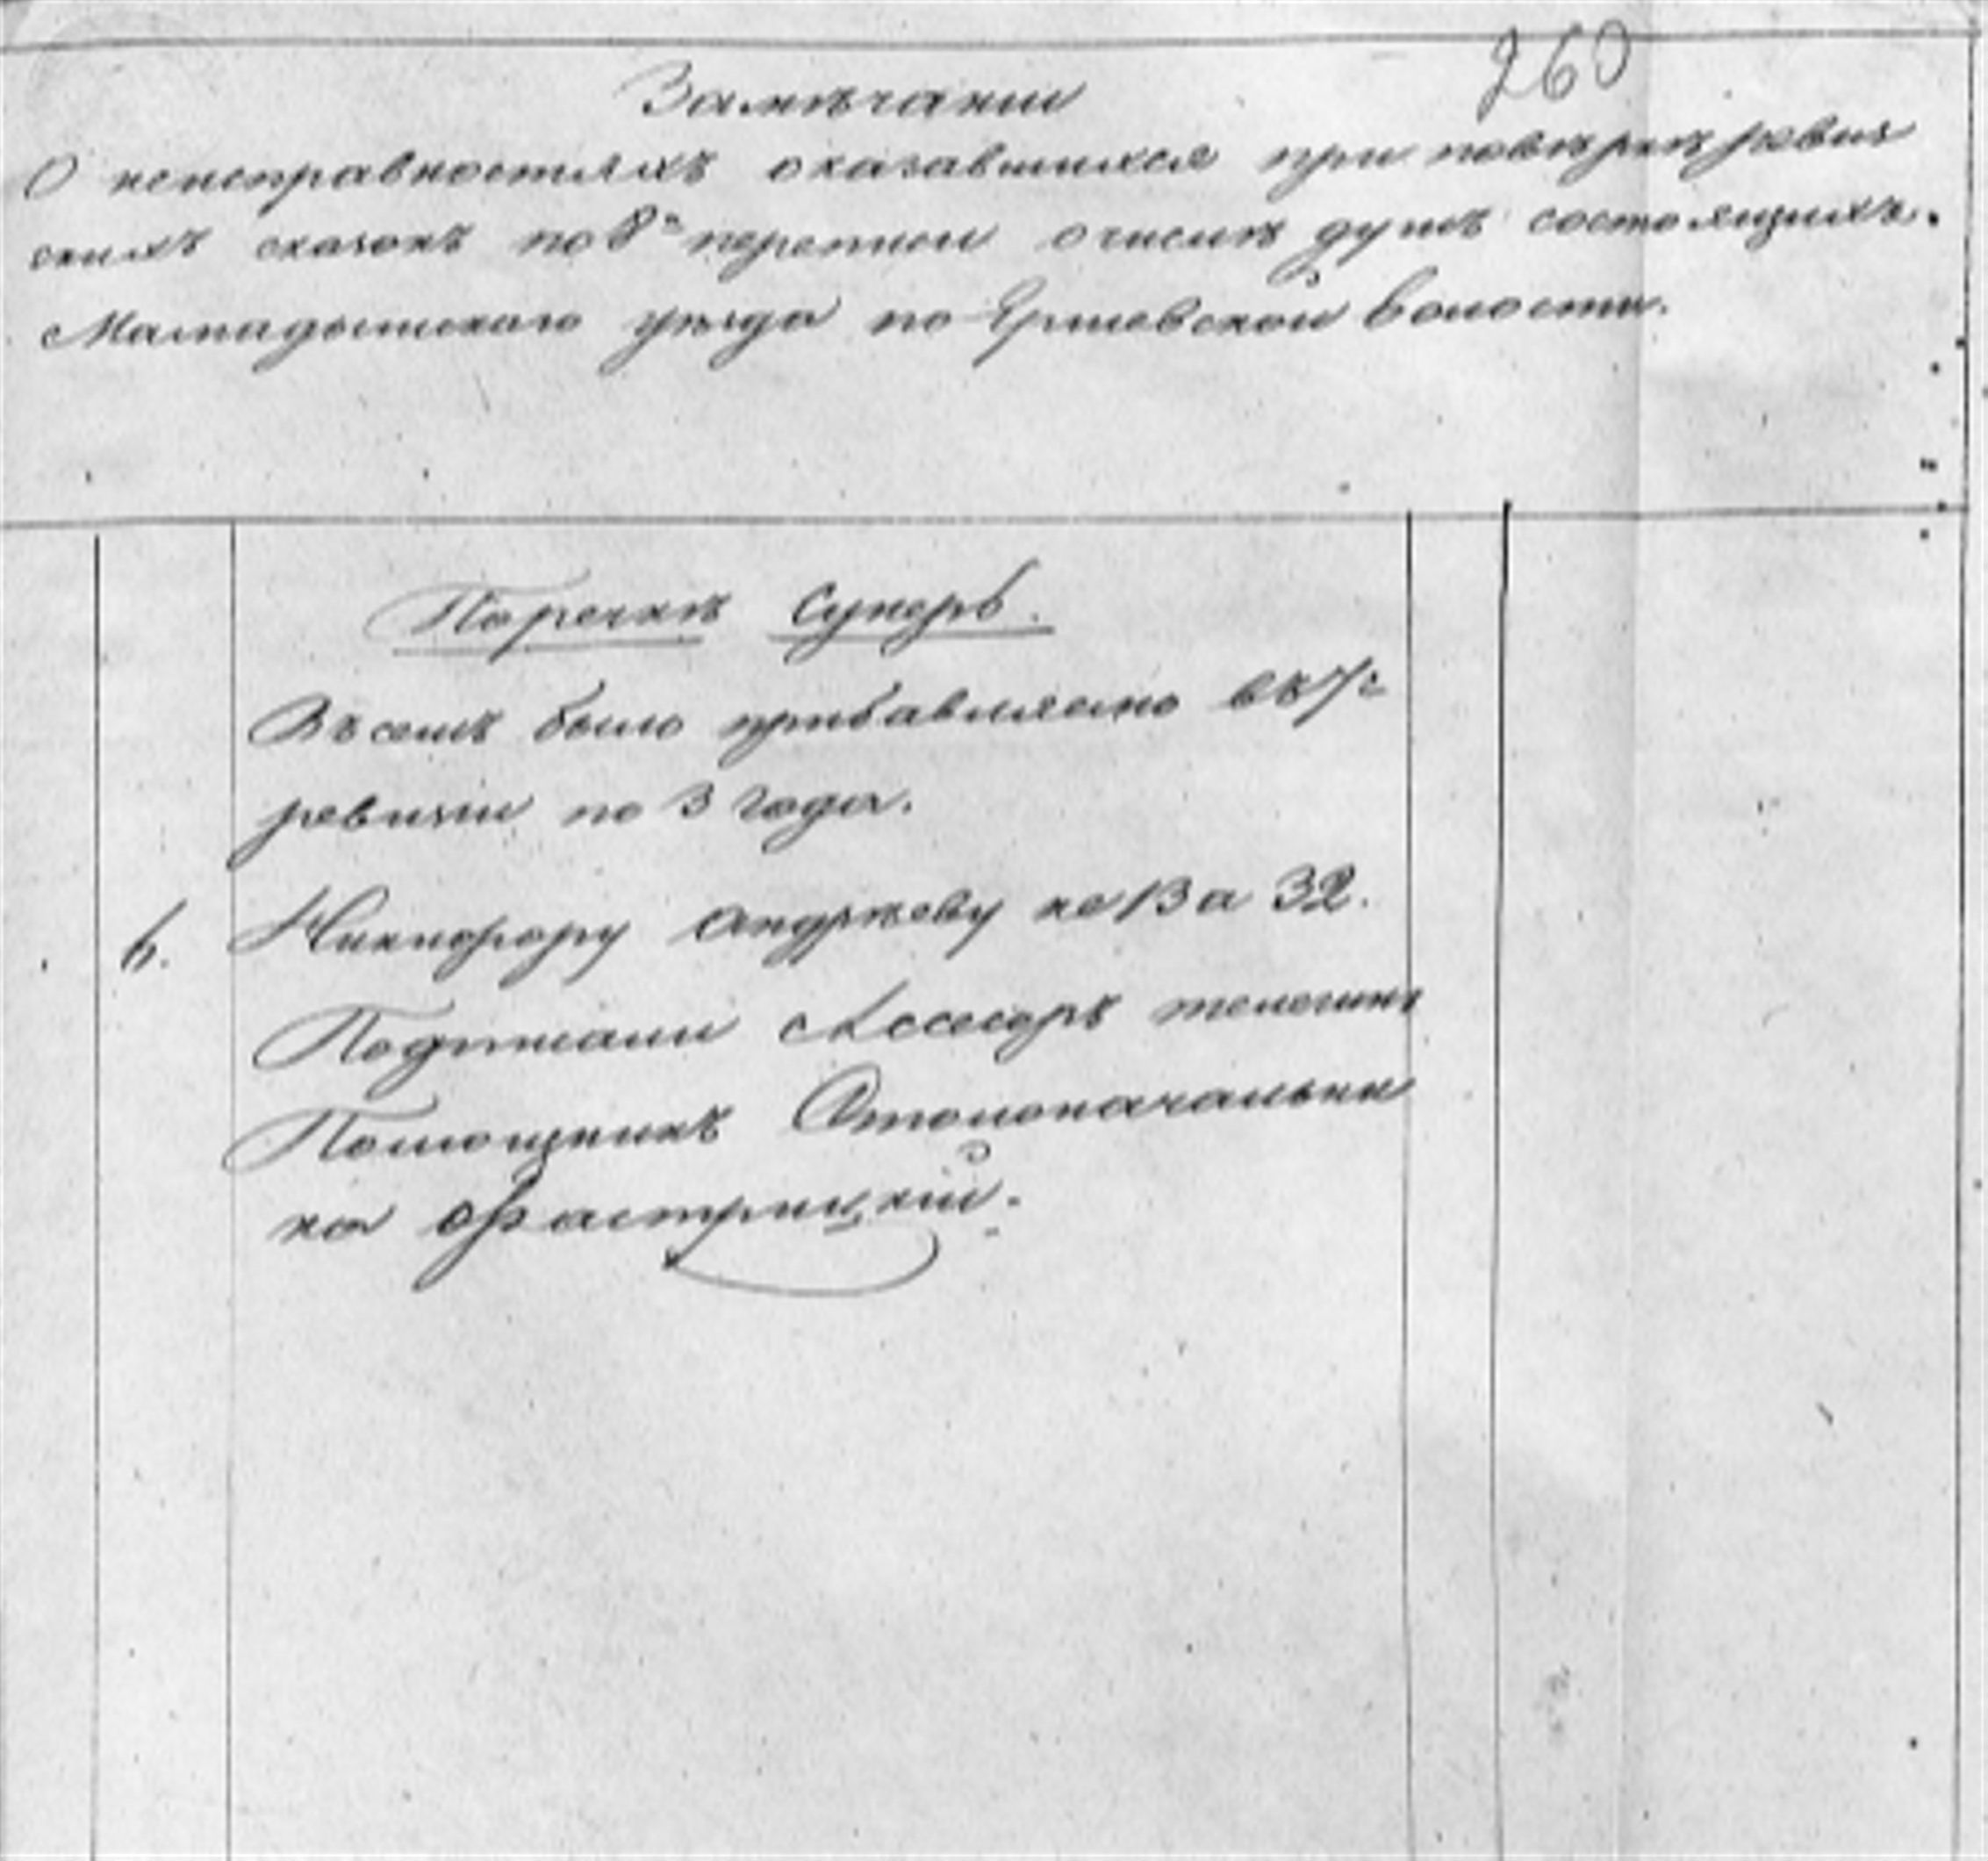 260
Замѣчании
О неисправностяхъ оказавшихся при повѣркѣ ревиз
скихъ сказокъ по 8й переписи очислѣ душъ состоящихъ.
Мамадышскаго уѣзда по Ершевской волости.
Поречкѣ Суперъ.
Въ семъ было прибавляемо въ 7й
ревизии по 3 года.
6. Никифору Андрѣеву не 13 а 32.
Подписали Ассесоръ телегинъ
Помощникъ Столоначальни
ка